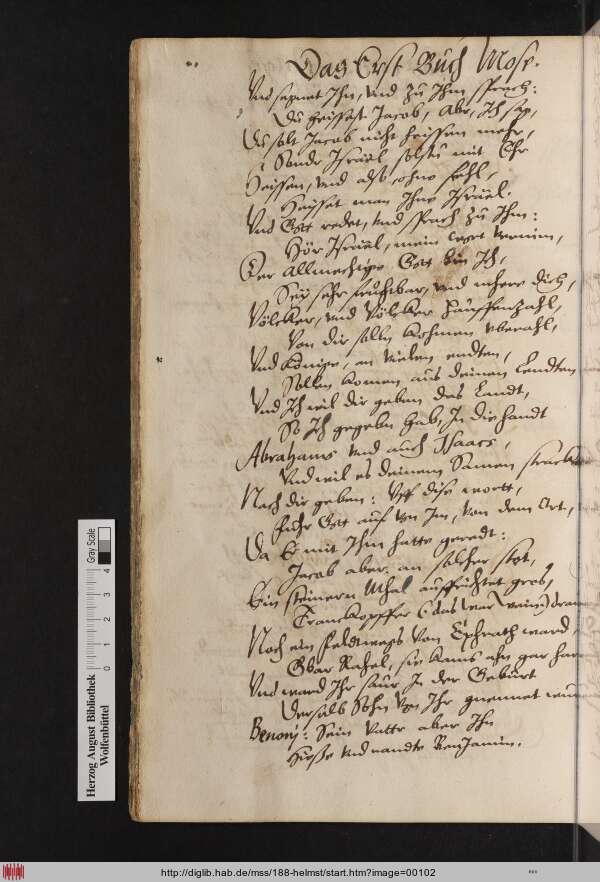 Das Erst Buch Mose.
Vnd segnet Ihn, vnd zu Ihm sprach:
Du heissest Jacob, Aber Ich sag,
Du solt Jacob nicht heissen mehr,
Sonder Israël soltu mit Ehr
Heissen, vnd also ohne fehl,
Heysset man Ihne Israël.
Vnd Gott redet, vnd sprach zu Ihm:
Hör Israël, mein wort vernim,
Der Allmechtige Gott bin Ich,
Sey sehr fruchtbar, vnd mehre dich,
Völcker, vnd Völcker hauffenzahl,
Von dir solln kohmen vberahl,
Vnd Könige, an vielen endten,
Sollen komen aus deinen Lendten
Vnd Ich wil dir geben das Landt,
So Ich gegeben hab, In die handt
Abrahams vnd auch Isaacs,
Vnd wil es deinem Samen
Nach dir geben: Vff dise wortt,
Fuhr Gott auf von Im, von dem Ort,
Da Er mit Ihm hatte geredt:
Jacob aber, an solcher stet,
Ein steinern Mahl auffrichtet gros,
Tranckopffer (das war wein)
Noch ein feldtwegs von Ephrath ward,
Gbar Rahel, sie kam's ahn gar
Vnd ward Ihr saur In der Geburt
Derselb Sohn von Ihr gnennet
Benonj: Sein Vatter aber Ihn
Hiesse vnd nandte BenJamin.
Herzog August Bibliothek
Wolfenbüttel
0 1 2 3 4
Gray Scale
http://diglib.hab.de/mss/188-helmst/start.htm?image=00102